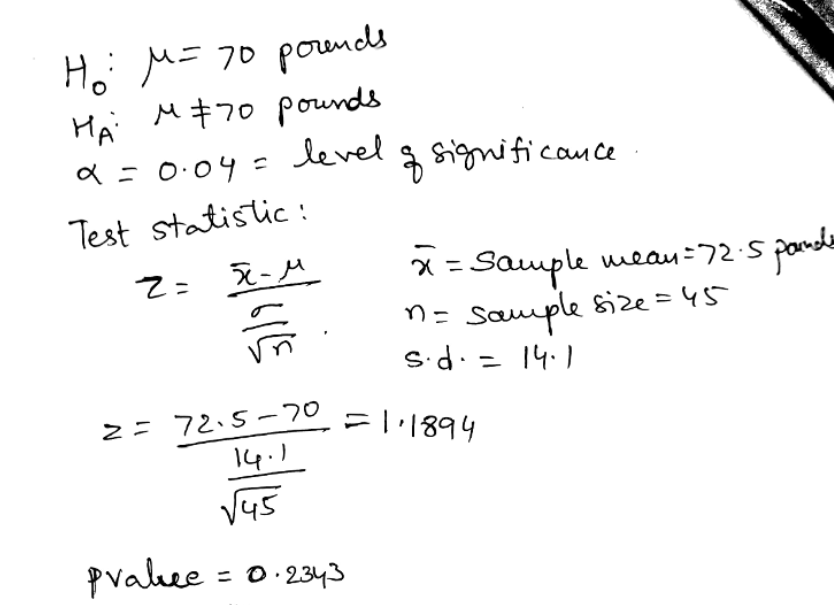 H₀: μ = 70 pounds
H_A: μ ≠ 70 pounds
α = 0.04 = level of significance.
Test statistic:
z = (x̄ - μ) / (σ / √n).
x̄ = Sample mean = 72.5 pounds
n = Sample size = 45
s.d. = 14.1
z = (72.5 - 70) / (14.1 / √45) = 1.1894
pvalue = 0.2343